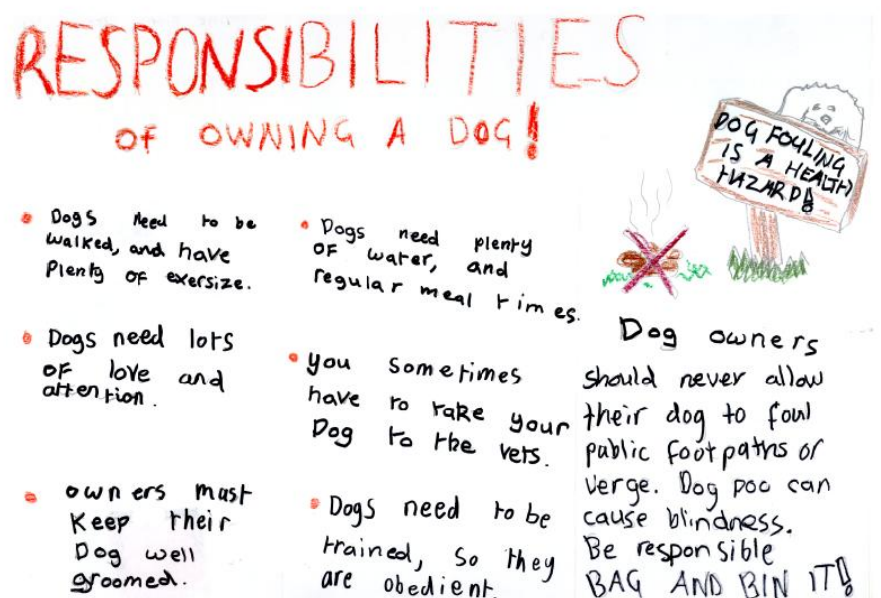 RESPONSIBILITIES
OF OWNING A DOG!
Dogs need to be
walked, and have
Plenty of exersize.
Dogs need lots
of love and
attention.
owners must
Keep their
Dog well
groomed.
Dogs need plenty
of water, and
regular meal times.
you sometimes
have to take your
Dog to the vets.
Dogs need to be
trained, so they
are obedient.
DOG FOULING
IS A HEALTH
HAZARD!
Dog owners
should never allow
their dog to foul
public footpaths or
verge. Dog poo can
cause blindness.
Be responsible
BAG AND BIN IT!